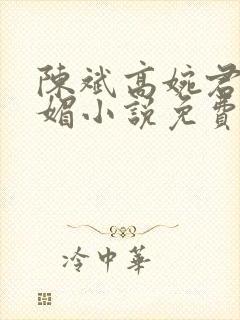 陳斌高婉君
媚小説免費
冷中華